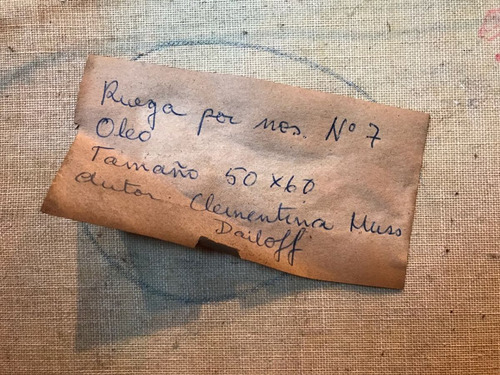 Ruega por nos. Nº 7
Oleo
Tamaño 50 x 60
Autor. Clementina Muss
Dailoff